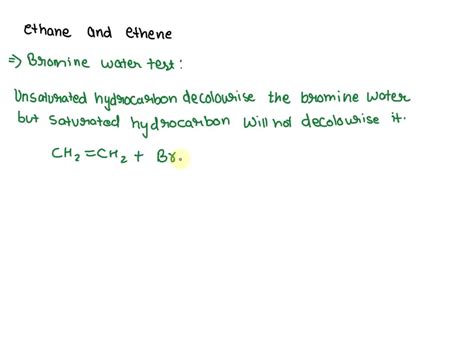 ethane and ethene
⇒ Bromine water test:
Unsaturated hydrocarbon decolourise the bromine water
but saturated hydrocarbon will not decolourise it.
CH₂=CH₂ + Br